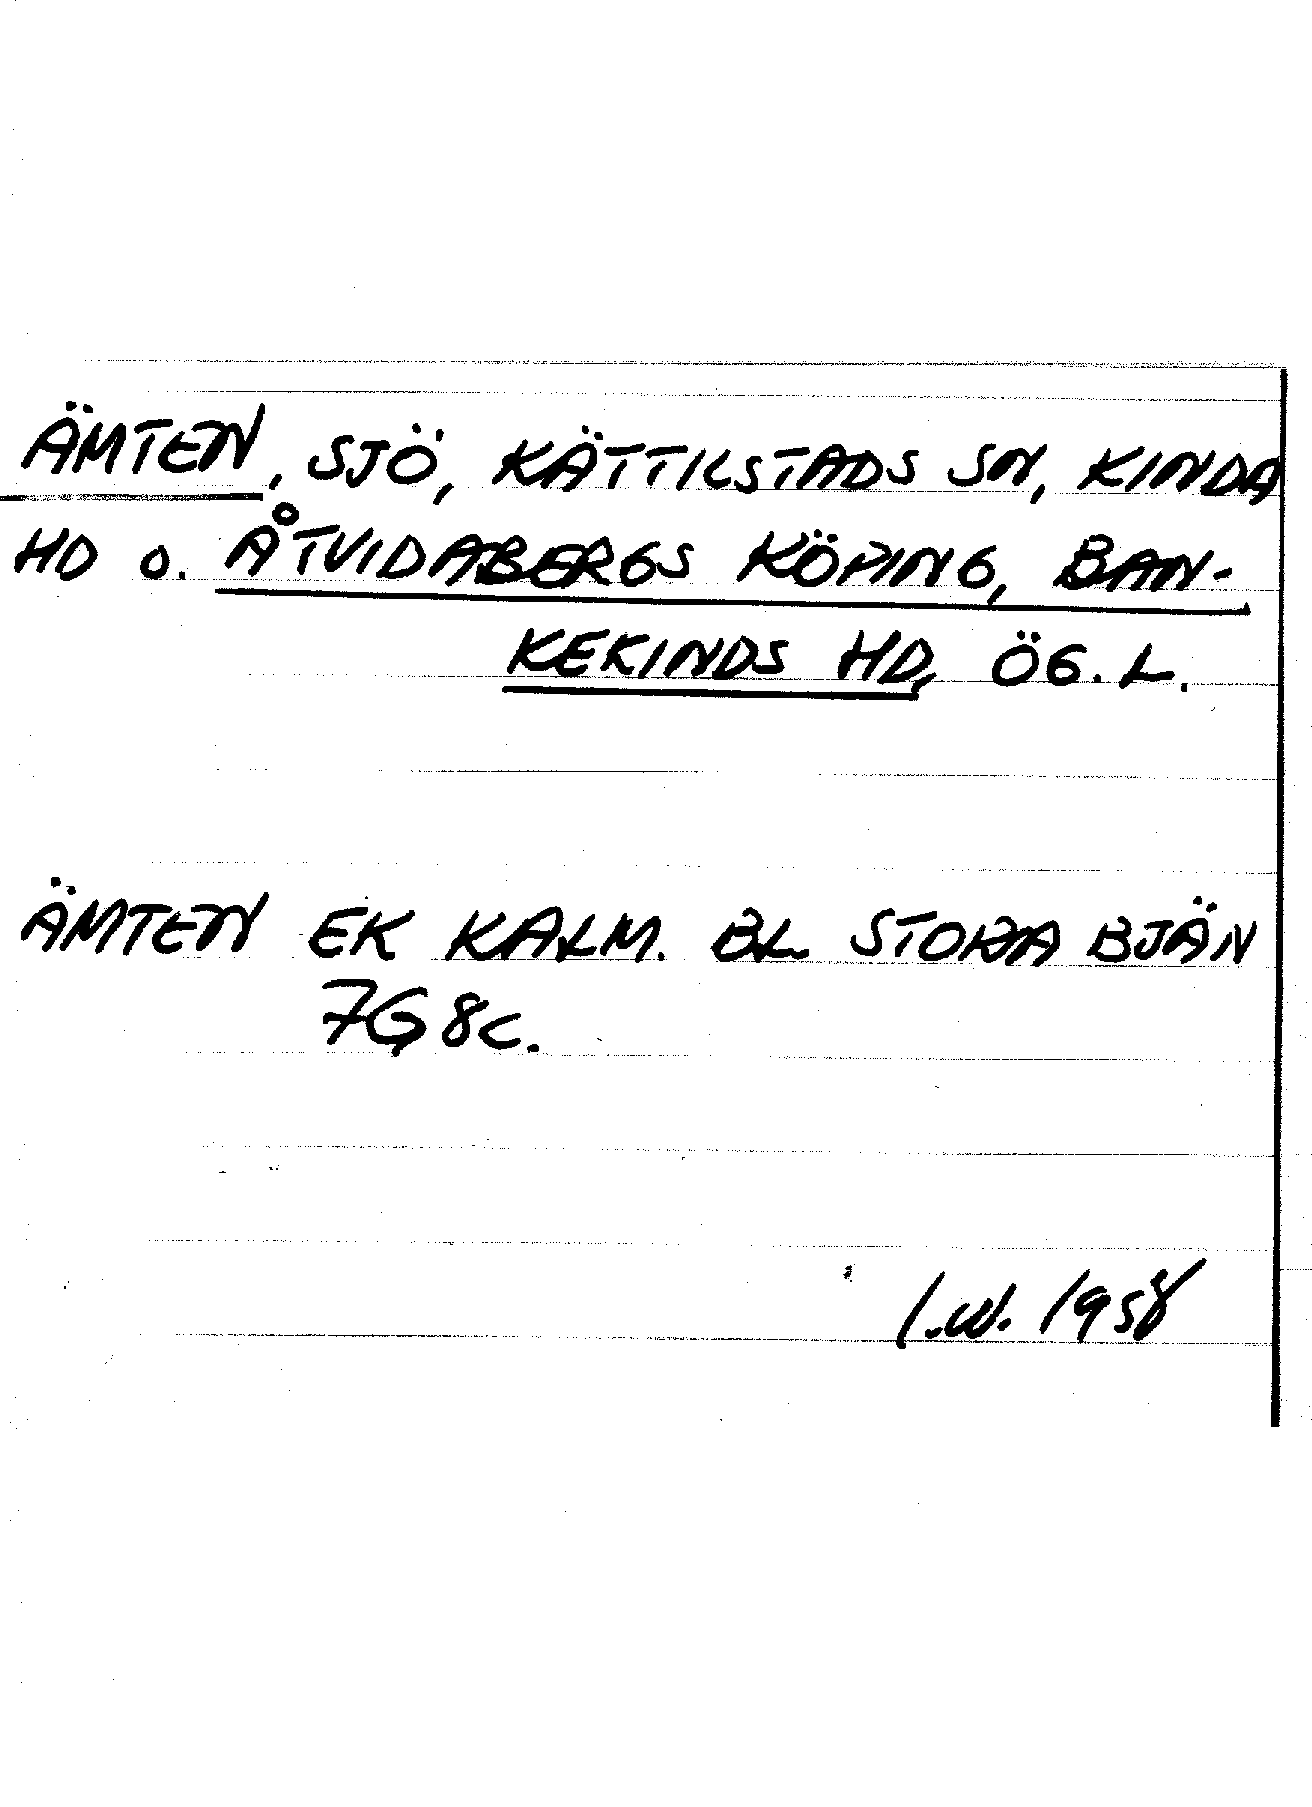 ÄMTEN, SJÖ, KÄTTILSTADS SN, KINDA
HD o. ÅTVIDABERGS KÖPING, BAN-
KEKINDS HD, ÖG. L.
ÄMTEN EK KALM. BL. STORA BJÄN
7G 8c.
I.W. 1958